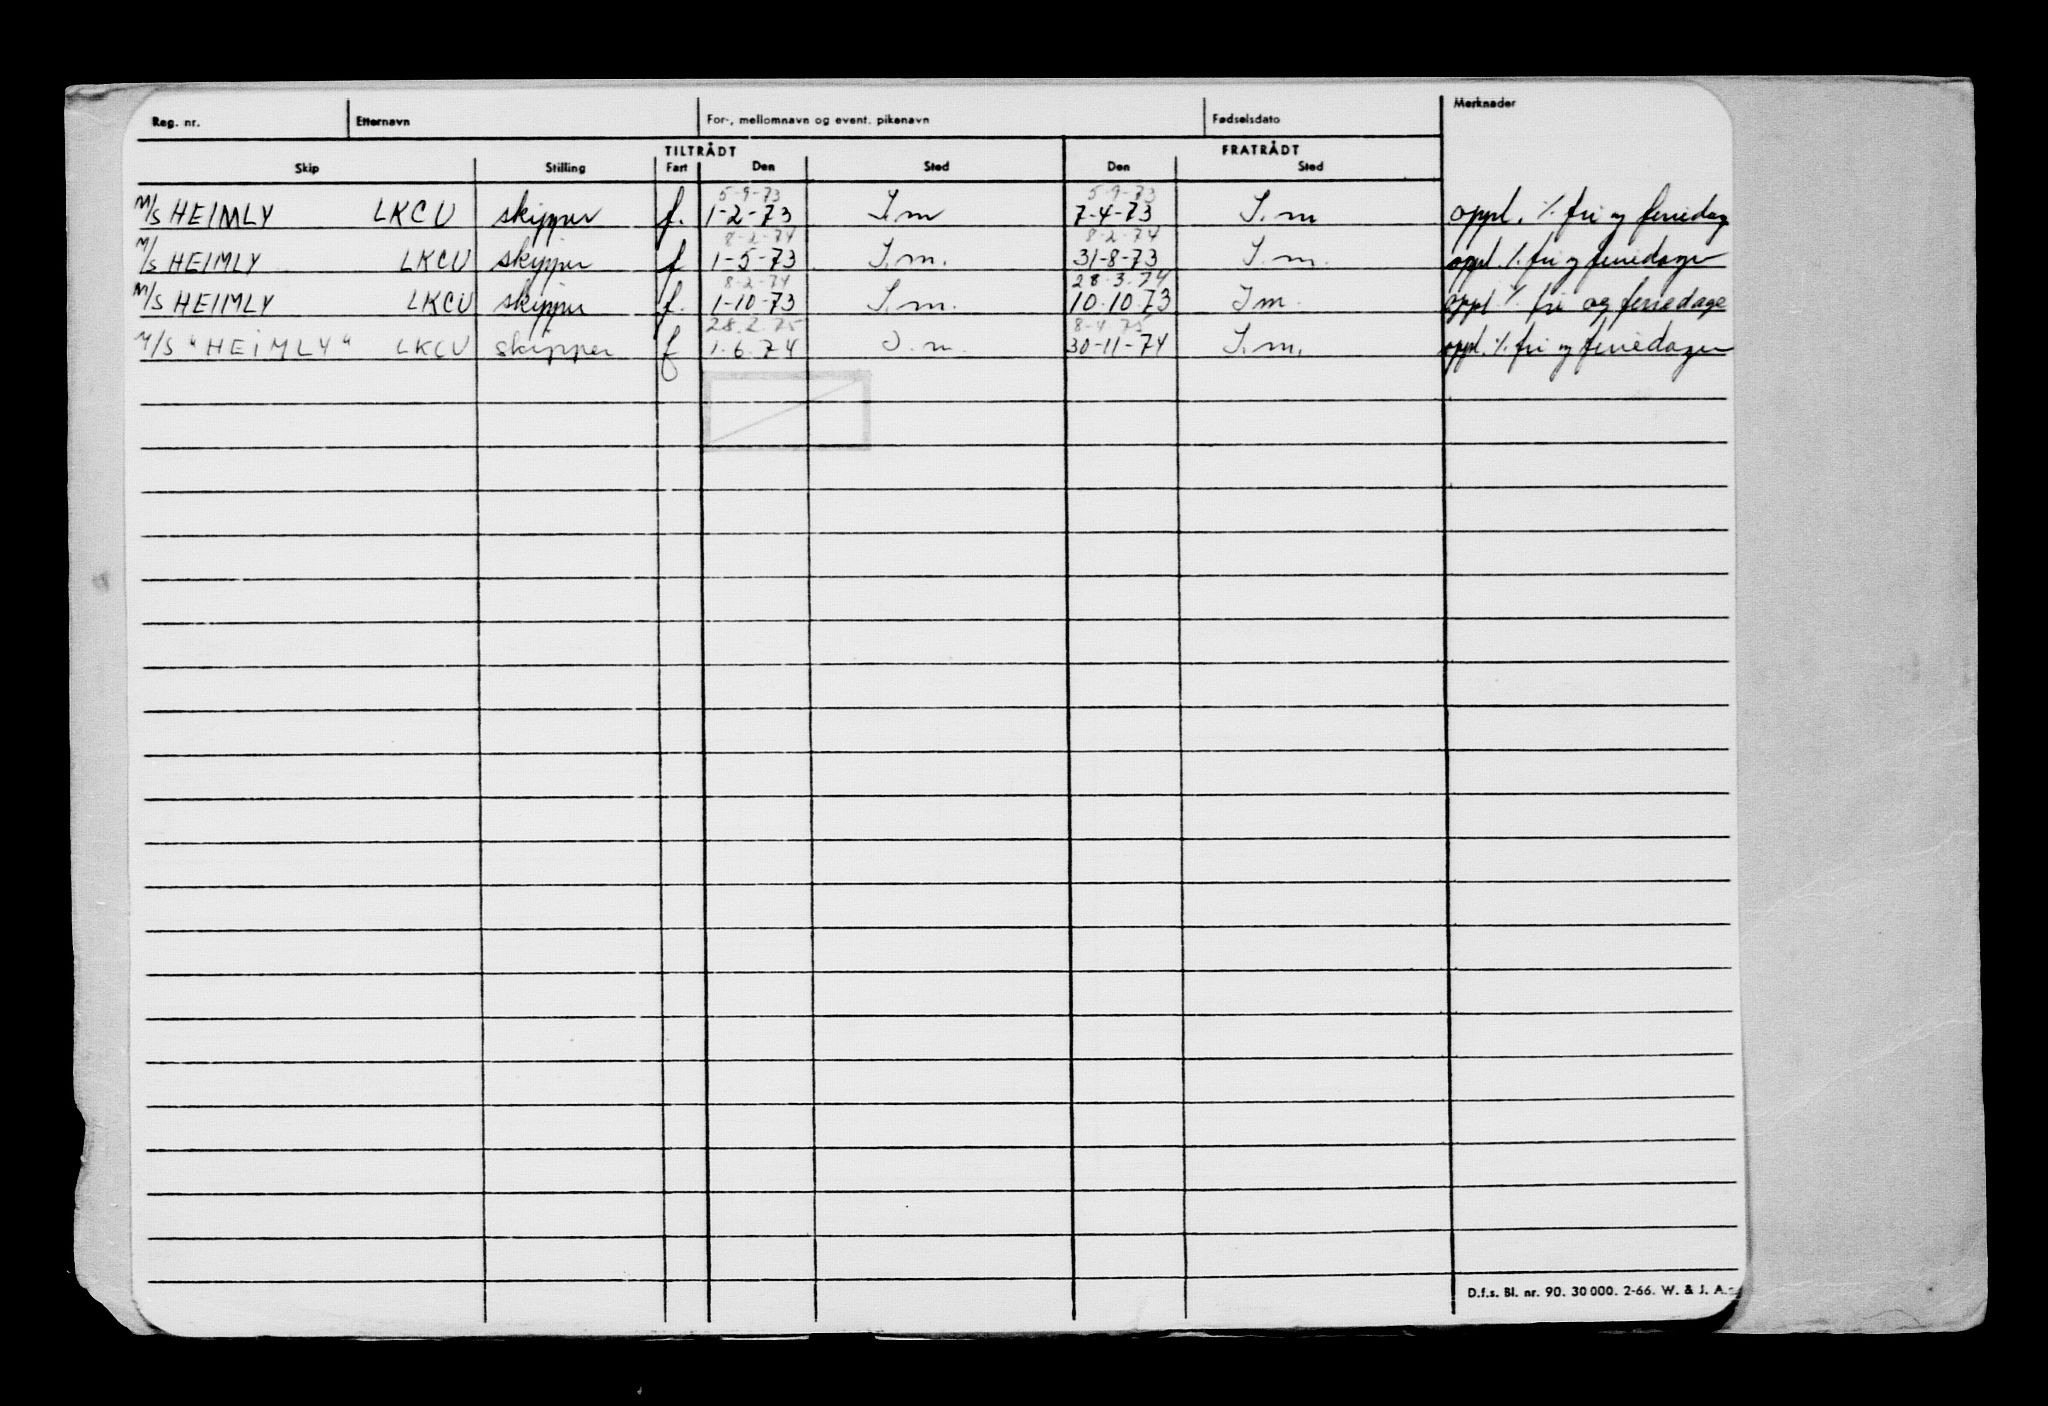 Reg. nr. Etternavn For-, mellomnavn og event. pikenavn Fødselsdato Merknader
TILTRÅDT FRATRÅDT
Skip Stilling Fart Den Sted Den Sted
5-9-73 5-9-73
M/S HEIMLY LKCU skipper f. 1-2-73 I.m 7-4-73 I.m oppl. % fri og feriedag
8-2-74 8-2-74
M/S HEIMLY LKCU skipper f 1-5-73 I.m. 31-8-73 I.m. oppl. % fri og feriedager
8-2-74 28.3.74
M/S HEIMLY LKCU skipper f. 1-10-73 I.m. 10.10.73 I m. oppl % fri og feriedage
28.2.75 8-4-75
M/S "HEIMLY" LKCU skipper f 1.6.74 I.m. 30-11-74 I.m. oppl. % fri og feriedager
D.f.s. Bl. nr. 90. 30 000. 2-66. W. & J. A.